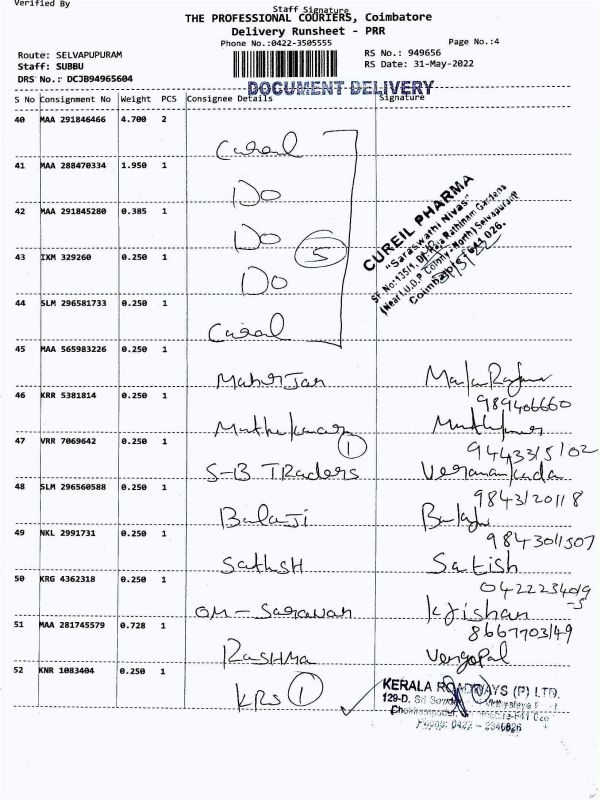 Verified By
Staff Signature
THE PROFESSIONAL COURIERS, Coimbatore
Delivery Runsheet - PRR
Phone No.:0422-3505555
Page No.:4
Route: SELVAPUPURAM
RS No.: 949656
Staff: SUBBU
RS Date: 31-May-2022
DRS No.: DCJB94965604
DOCUMENT DELIVERY
S No Consignment No Weight PCS Consignee Details Signature
40 MAA 291846466 4.700 2
Cureal
41 MAA 288470334 1.950 1
Do
42 MAA 291845280 0.385 1
Do
5
43 IXM 329260 0.250 1
Do
44 SLM 296581733 0.250 1
Cureal
CUREIL PHARMA
"Saraswathi Nivas"
SF.No:135/1, Raja Rathinam Gardens
(Near I.U.D.P. Colony-North) Selvapuram
Coimbatore 641 026.
45 MAA 565983226 0.250 1
46 KRR 5381814 0.250 1
989406660
Muthukumar
1
47 VRR 7069642 0.250 1
9443315102
S-B TRaders
48 SLM 296560588 0.250 1
9843120118
BalaJi Balaji
49 NKL 2991731 0.250 1
9843011507
SathSH Satish
50 KRG 4362318 0.250 1
04222234019
-5
OM - Saravan Krishan
51 MAA 281745579 0.728 1
8667703149
RASHMA Vengopal
52 KNR 1083404 0.250 1
KRS 1
KERALA ROADWAYS (P) LTD.
129-D, Sri
Phone: 0422 - 2346826